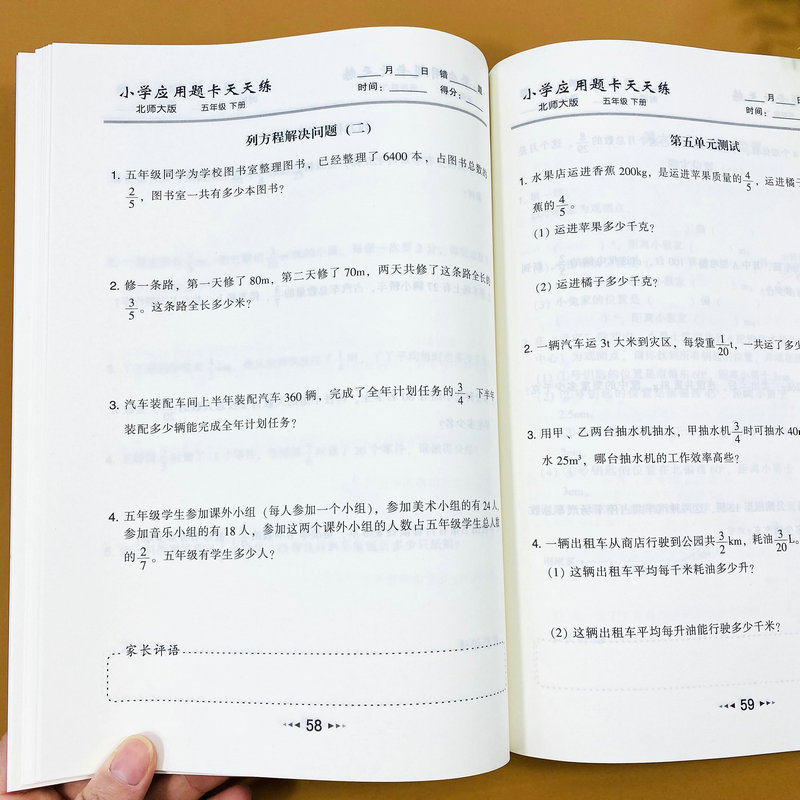 小学应用题卡天天练
北师大版 五年级 下册
___月___日 错___题
时间：___ 得分：___
列方程解决问题（二）
1. 五年级同学为学校图书室整理图书，已经整理了 6400 本，占图书总数的
2/5，图书室一共有多少本图书？
2. 修一条路，第一天修了 80m，第二天修了 70m，两天共修了这条路全长的
3/5。这条路全长多少米？
3. 汽车装配车间上半年装配汽车 360 辆，完成了全年计划任务的3/4，下半年
装配多少辆能完成全年计划任务？
4. 五年级学生参加课外小组（每人参加一个小组），参加美术小组的有 24 人，
参加音乐小组的有 18 人，参加这两个课外小组的人数占五年级学生总人数
的2/7。五年级有学生多少人？
家长评语
58
小学应用题卡天天练
北师大版 五年级 下册
___月___日
时间：___
第五单元测试
1. 水果店运进香蕉 200kg，是运进苹果质量的4/5，运进橘子
蕉的4/5。
(1) 运进苹果多少千克？
(2) 运进橘子多少千克？
2. 一辆汽车运 3t 大米到灾区，每袋重1/20t，一共运了多少
3. 用甲、乙两台抽水机抽水，甲抽水机3/4时可抽水 40m
水 25m³，哪台抽水机的工作效率高些？
4. 一辆出租车从商店行驶到公园共3/2km，耗油3/20L。
(1) 这辆出租车平均每千米耗油多少升？
(2) 这辆出租车平均每升油能行驶多少千米？
59